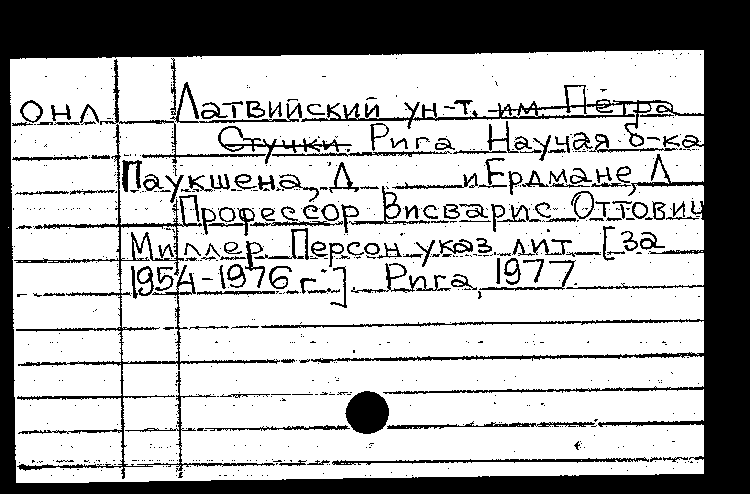 ОНЛ Латвийский ун-т. им. Петра
Стучки. Рига Научая б-ка
Паукшена, Л и Ердмане, Л
Профессор Висварис Оттович
Миллер Персон указ лит [за
1954-1976 г.]. Рига, 1977